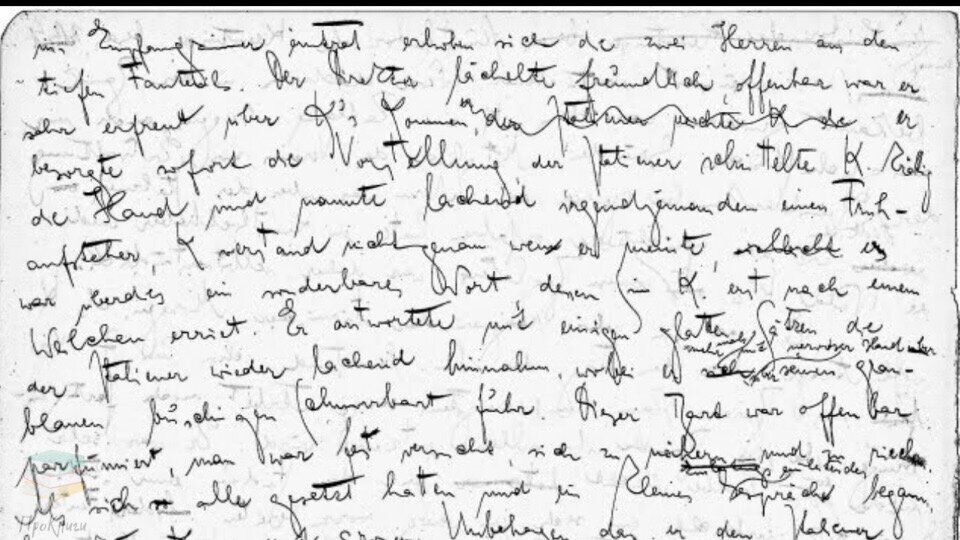 ins Empfangzimmer eintrat erhoben sich die zwei Herren aus den
tiefen Fauteuils. Der Direktor lächelte freundlich, offenbar war er
sehr erfreut über K's Kommen, er der Italiener reichte K die er
besorgte sofort die Vorstellung der Italiener schüttelte K. kräftig
die Hand und nannte lachend irgendjemanden einen Früh-
aufsteher, K verstand nicht genau wen er meinte, es
war überdies ein sonderbares Wort dessen Sinn K. erst nach einem
Weilchen erriet. Er antwortete mit einigen glatten Sätzen die
mehrmals mit nervöser Hand über
der Italiener wieder lachend hinnahm, wobei er sich seinen grau-
blauen buschigen Schnurrbart fuhr. Dieser Bart war offenbar
parfümiert, man war fast versucht, sich zu nähern und zu riechen.
einleitendes
Als sich alle gesetzt hatten und ein kleines Gespräche begann,
Unbehagen, das er den Italiener
ПроКниги